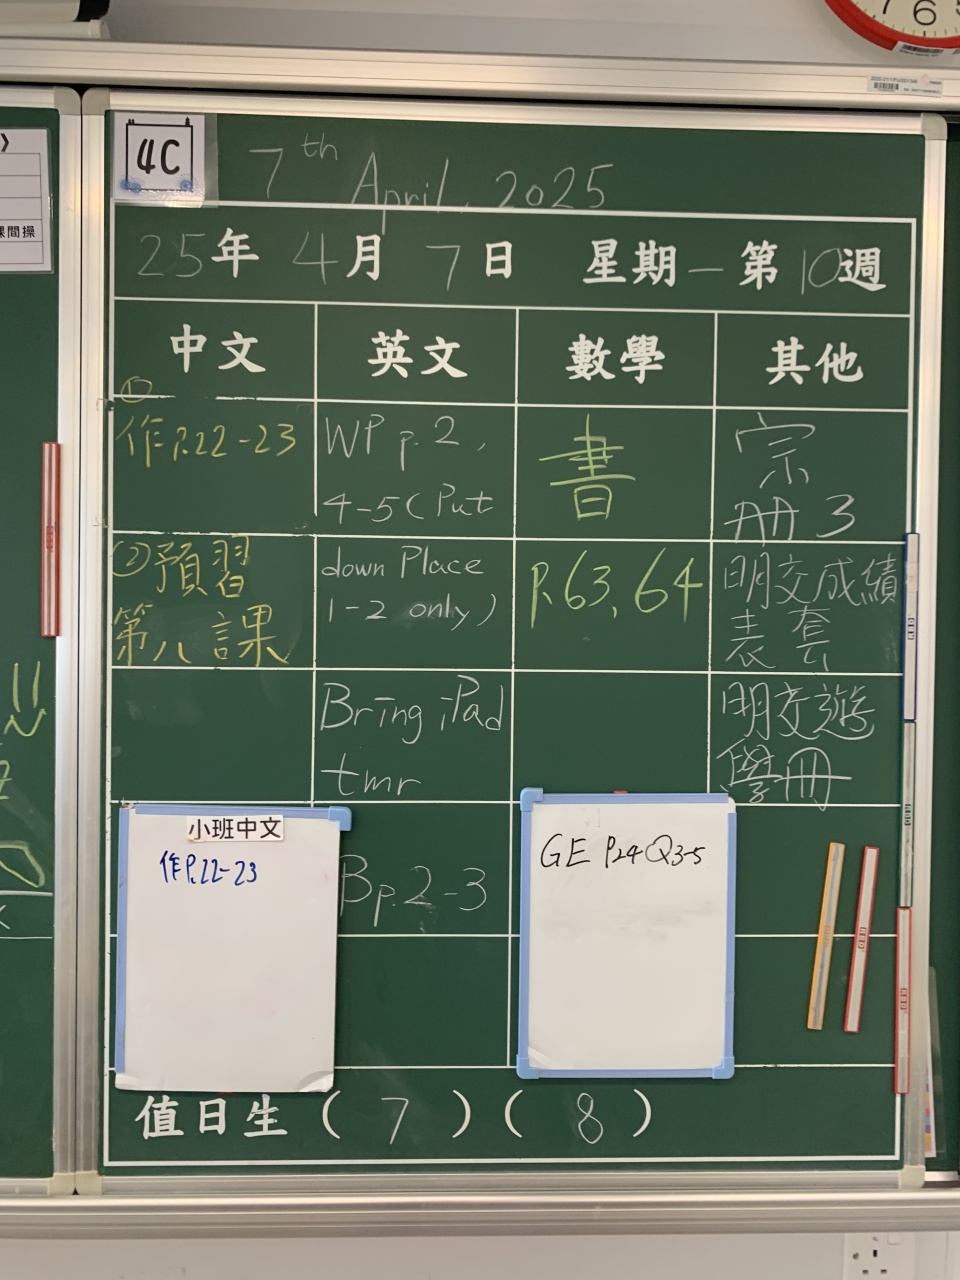 4C
7th April, 2025
25年 4月 7日 星期一 第10週
中文 英文 數學 其他
① 作P.22-23
② 預習
第八課
WP p.2,
4-5 (Put
down Place
1-2 only)
Bring iPad
tmr
Bp.2-3
書
P.63, 64
宗
冊3
明交成績
表套
明交遊
學冊
小班中文
作P.22-23
GE P24 Q3-5
值日生 ( 7 ) ( 8 )
課間操
7 6 5